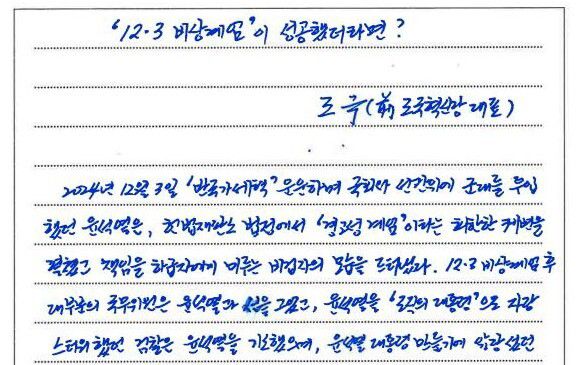 '12·3 비상계엄'이 성공했더라면?
조 국(前 조국혁신당 대표)
2024년 12월 3일 '반국가세력' 운운하며 국회와 선관위에 군대를 투입
했던 윤석열은, 헌법재판소 법정에서 '경고성 계엄'이라는 희한한 궤변을
펼쳤고 책임을 하급자에게 미루는 비겁자의 모습을 드러냈다. 12·3 비상계엄 후
대부분의 국무위원은 윤석열과 선을 그었고, 윤석열을 '조직의 대통령'으로 자랑
스러워했던 검찰은 윤석열을 기소했으며, 윤석열 대통령 만들기에 앞장섰던